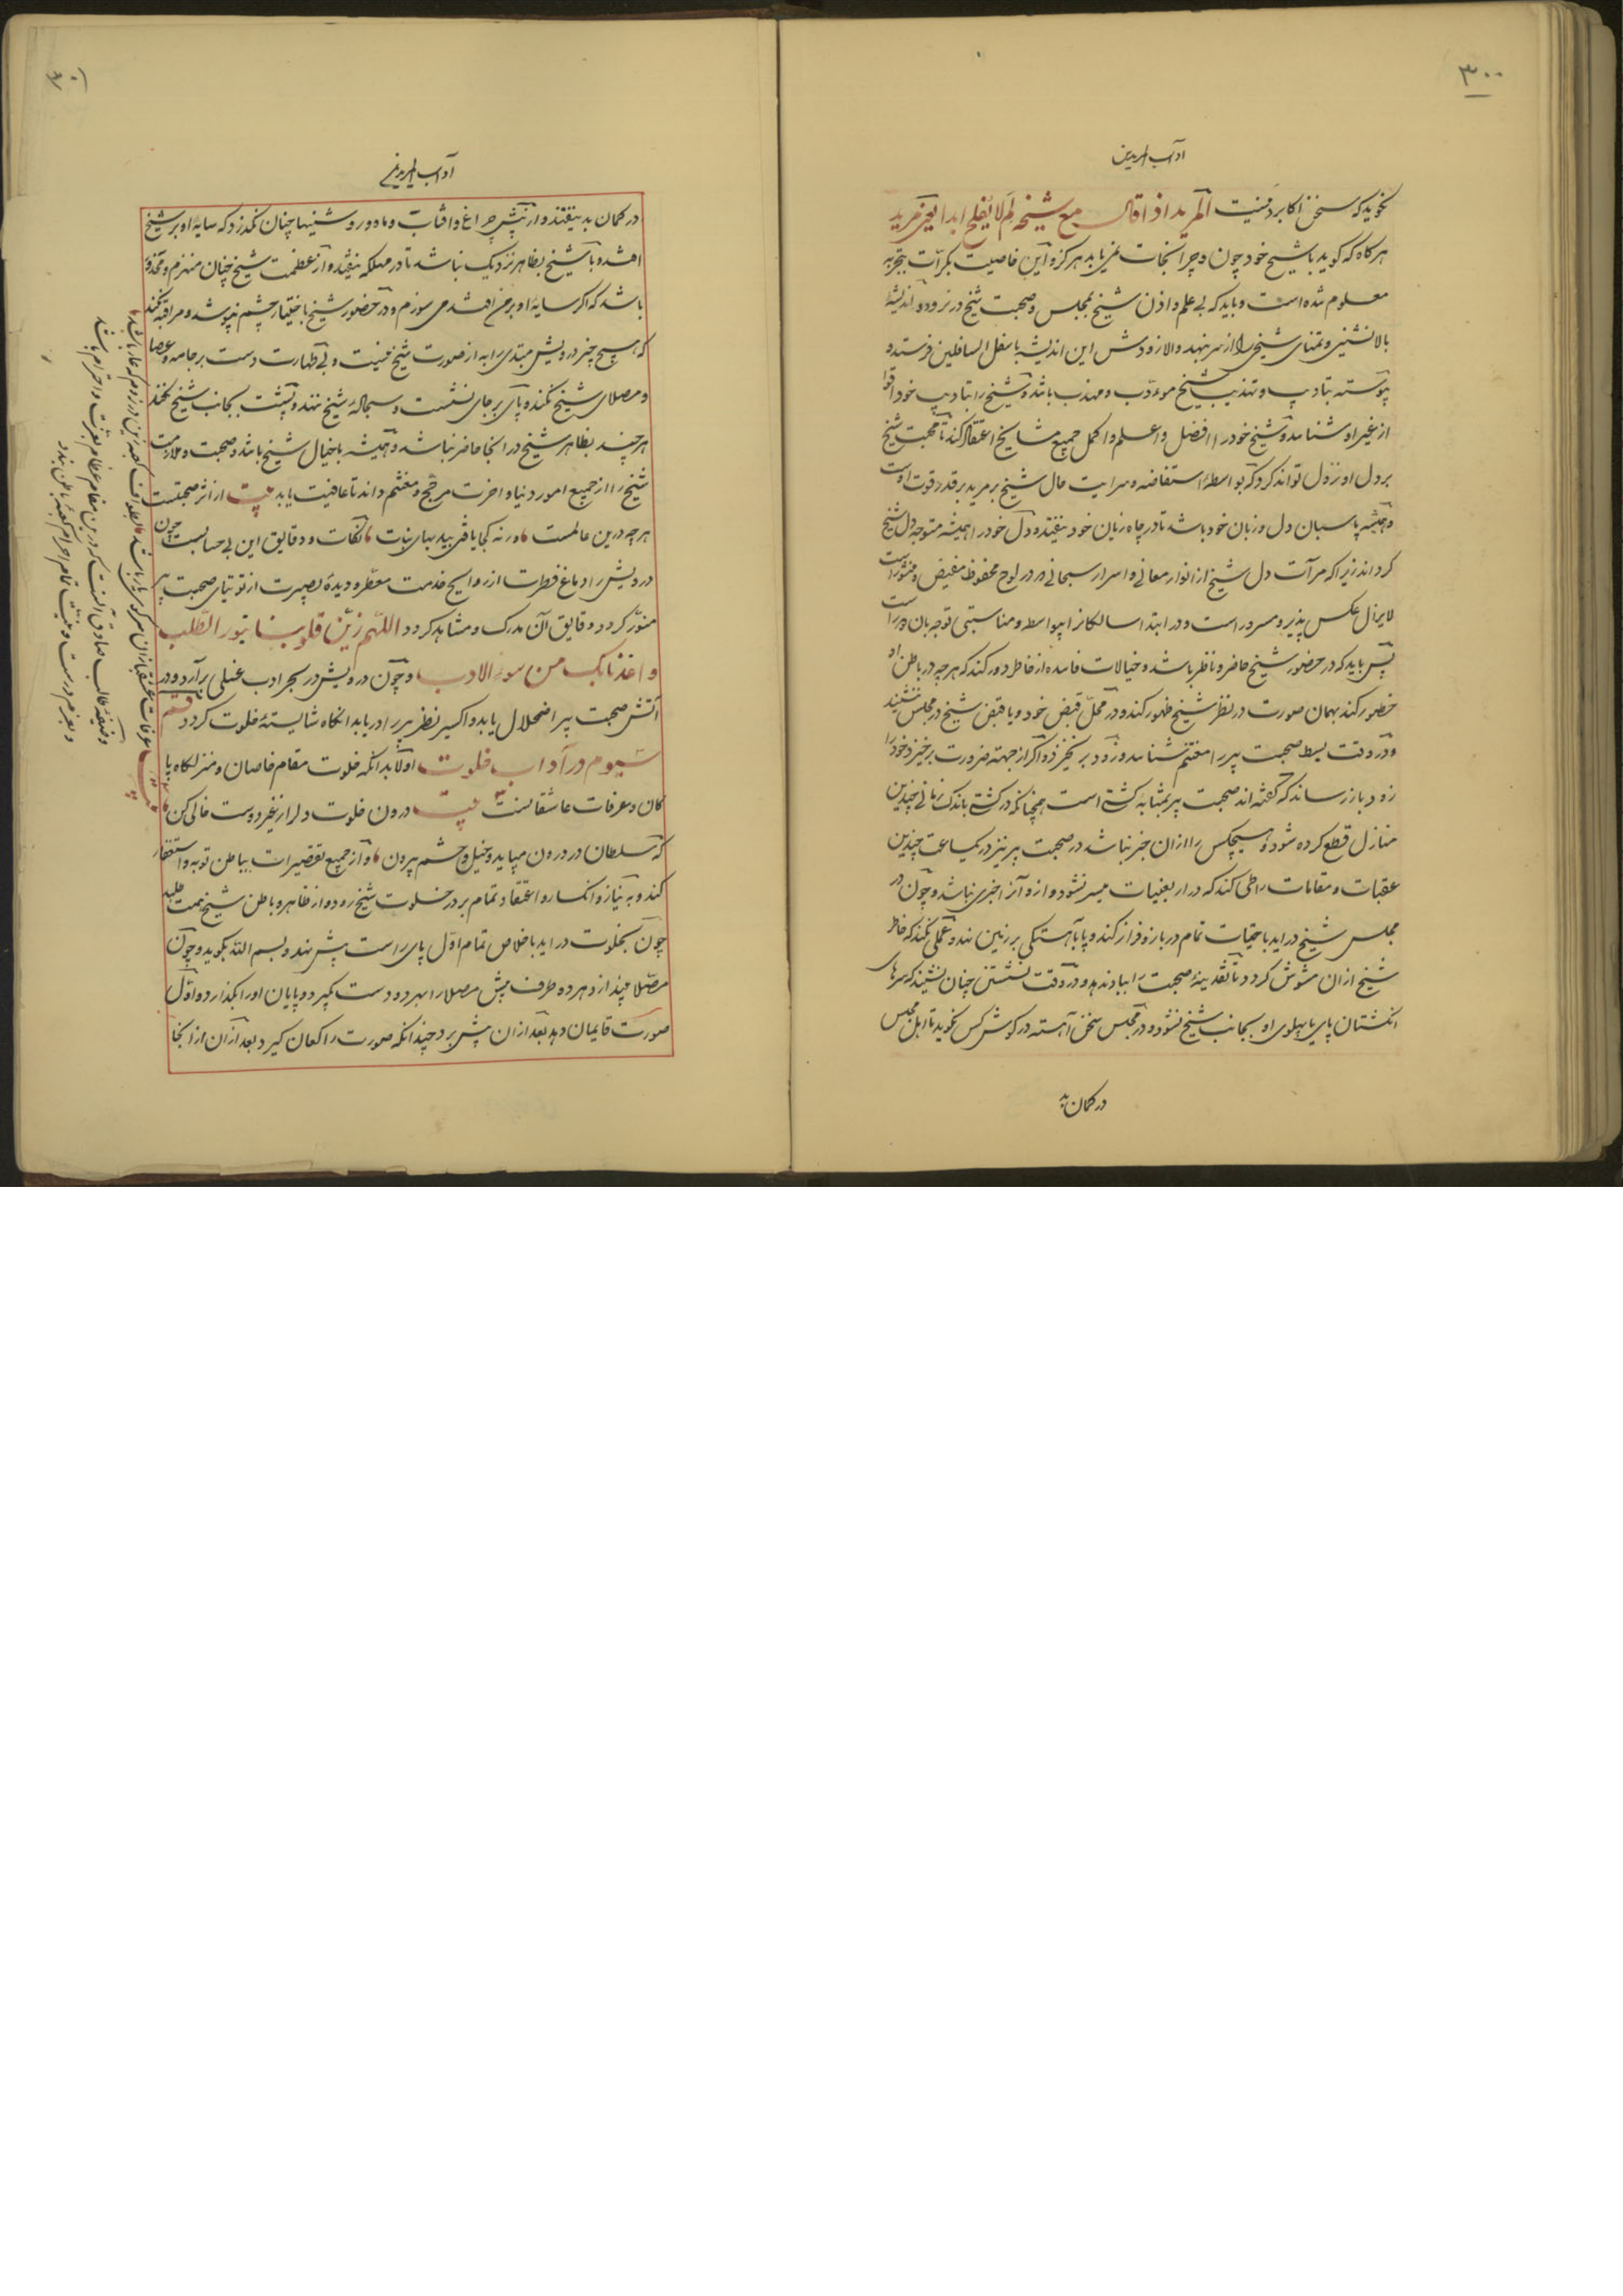 ۳۰۰
آداب المریدین
نکوید که سخن اکابر دینست المرید اذا قال مع شیخه لم لا یفلح ابدا یعنی مرید
هرکاه که کوید با شیخ خود چون و چرا نجات نمی یابد هرکز و این خاصیت بکرات بتجربه
معلوم شده است و باید که بی علم و اذن شیخ بمجلس و صحبت شیخ در نرود و اندیشهٔ
بالانشینی و تمنای شیخی را از سر بنهد والا زودش این اندیشه باسفل السافلین فرستد و
پیوسته بتادیب و تهذیب شیخ مؤدب و مهذب باشد و شیخ را بتادیب خود اقوا
از غیر او شناسد و شیخ خود را افضل و اعلم و اکمل جمیع مشایخ اعتقاد کند تا محبت شیخ
بر دل او نزول تواند کرد که بواسطهٔ استفاضه و سرایت حال شیخ بر مرید بر قدر قوت اوست
و همیشه پاسبان دل و زبان خود باشد تا در چاه زیان خود نیفتد و دل خود را همیشه متوجه دل شیخ
کرداند زیرا که مرآت دل شیخ از انوار معانی و اسرار سبحانی و در لوح محفوظ مفیض و منور است
لایزال عکس پذیر و مسرور است و در ابتدا سالکانرا بیواسطه و مناسبتی توجه بان
پس باید که در حضور شیخ حاضر و ناظر باشد و خیالات فاسده از خاطر دور کند که هرچه در باطن او
خطور کند بهمان صورت در نظر شیخ ظهور کند و در محل قبض خود و یا قبض شیخ در مجلس ننشیند
و در وقت بسط صحبت پیر را مغتنم شناسد و زود بر نخیزد و اکر از جهتهٔ ضرورت برخیزد خود را
زود باز رساند که کفته اند صحبت پیر بمثابهٔ کشتی است همچنانکه در کشتی باندک زمانی چندین
منازل قطع کرده شود و هیچکس را از ان خبر نباشد در صحبت پیر نیز در یکساعت چندین
عقبات و مقامات را طی کند که در اربعینات میسر نشود و از و آنرا خبری نباشد و چون در
مجلس شیخ در اید باحتیاط تمام در باز و فراز کند و پا بآهستکی بر زمین نهد و عملی نکند که خاطر
شیخ از ان مشوش کردد تا نقدینهٔ صحبت را بباد ندهد و در وقت نشستن چنان نشیند که سرهای
انکشتان پای یا پهلوی او بجانب شیخ نشود و در مجلس سخن آهسته در کوش کس نکوید تا اهل مجلس
در کمان بد
آداب المریدین
در کمان بد نیفتند و از پیش چراغ و افتاب و ماه و روشنیها چنان نکذرد که سایهٔ او بر شیخ
افتد و با شیخ بظاهر نزدیک نباشد تا در مهلکه نیفتد و از عظمت شیخ چنان منهزم و
باشد که اکر سایهٔ او بر من افتد می سوزم و در حضور شیخ باختیار چشم نپوشد و مراقبه نکند
که هیچ چیز درویش مبتدی را به از صورت شیخ نیست و بی طهارت دست بر جامه و عصا
و مصلای شیخ نکند و پای بر جای نشست و سجادهٔ شیخ ننهد و پشت بجانب شیخ نکند
هرچند بظاهر شیخ در انجا حاضر نباشد و همیشه با خیال شیخ باشد و صحبت و ملازمت
شیخ را از جمیع امور دنیا و اخرت مرجح و مغتنم داند تا عافیت یابد بیت از اثر صحبتست
هرچه درین عالمست ورنه کجا یافتی بید بهای نبات نکات و دقایق این بی حسابست چون
درویش را دماغ فطرت از روایح خدمت معطر و دیدهٔ بصیرت از توتیای صحبت پیر
منور کردد دقایق آن مدرک و مشاهد کردد اللهم زین قلوبنا بنور الطلب
و اعذنا بک من سوء الادب و چون درویش در بحر ادب غسلی برآرد و در
آتش صحبت پیر اضمحلال یابد و اکسیر نظر پیر را دریابد انکاه شایستهٔ خلوت کردد قسم
سیوم در آداب خلوت اولا بدانکه خلوت مقام خاصان و منزلکاه پا
کان و عرفات عاشقانست بیت درون خلوت دلرا ز غیر دوست خالی کن
که سلطان در درون می‌باید و خیل و حشم بیرون و از جمیع تقصیرات بباطن توبه و استغفار
کند و به نیاز و انکسار و اعتقاد تمام بر در خلوت شیخ رود و از ظاهر و باطن شیخ همت طلبد
چون بخلوت در اید باخلاص تمام اول پای راست پیش نهد و بسم الله بکوید و چون
مصلا بیندازد هر دو طرف پیش مصلا را بهر دو دست بکیرد و پایان او را بکذارد و اول
صورت قایمان دهد بعد از ان پیش برد چندانکه صورت راکعان کیرد بعد ازان از انجا